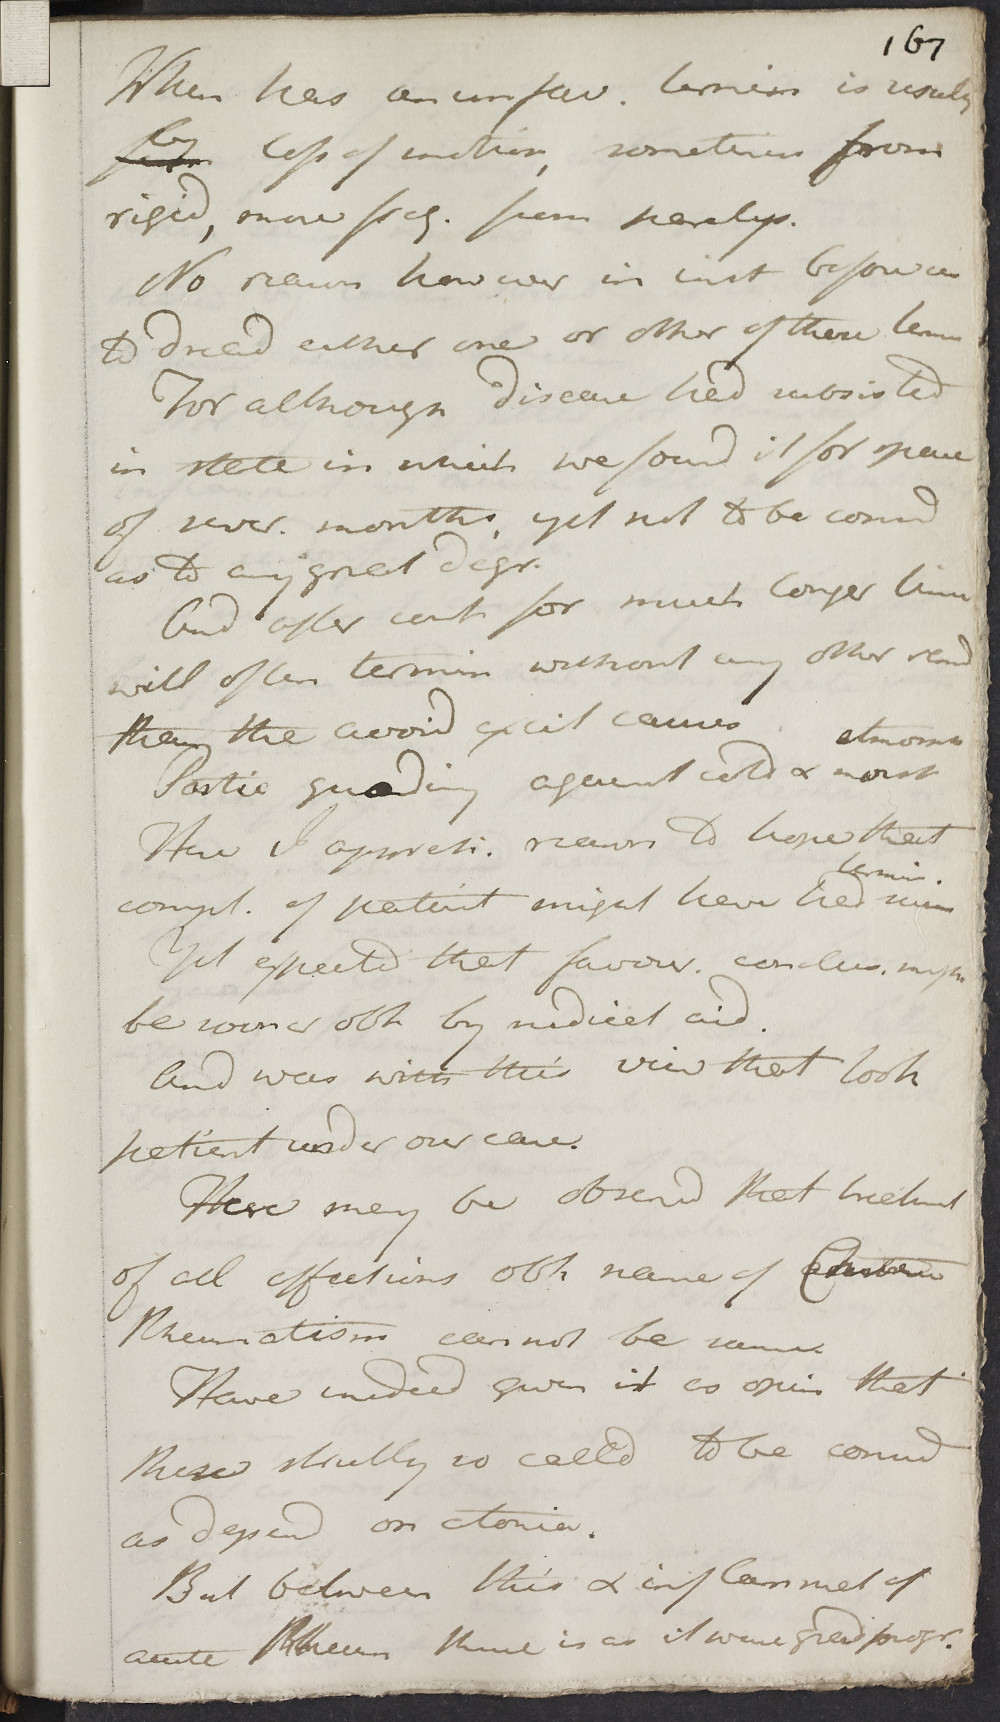 167
When has an unfav. termin is usually
by loss of motion, sometimes from
rigid, more freq. from paralys.
No reason however in inst before us
to dread either one or other of these term
For although disease had subsisted
in state in which we found it for space
of sever. months, yet not to be consid
as to any great degr.
And after cont for much longer time
will often termin without any other rem
than the avoid excit causes
Partic guarding against cold & moist atmosp
Here I appreh. reason to hope that
compl. of patient might have had termin.
Yet expected that favour. conclus. might
be sooner obt by medical aid.
And was with this view that took
patient under our care.
Here may be observd that treatment
of all affections obt name of
Rheumatism cannot be same.
Have indeed given it as opin that
those strictly so calld to be consid
as depend on atonia.
But between this & inflammat of
acute Rheum there is as it were grad progr.